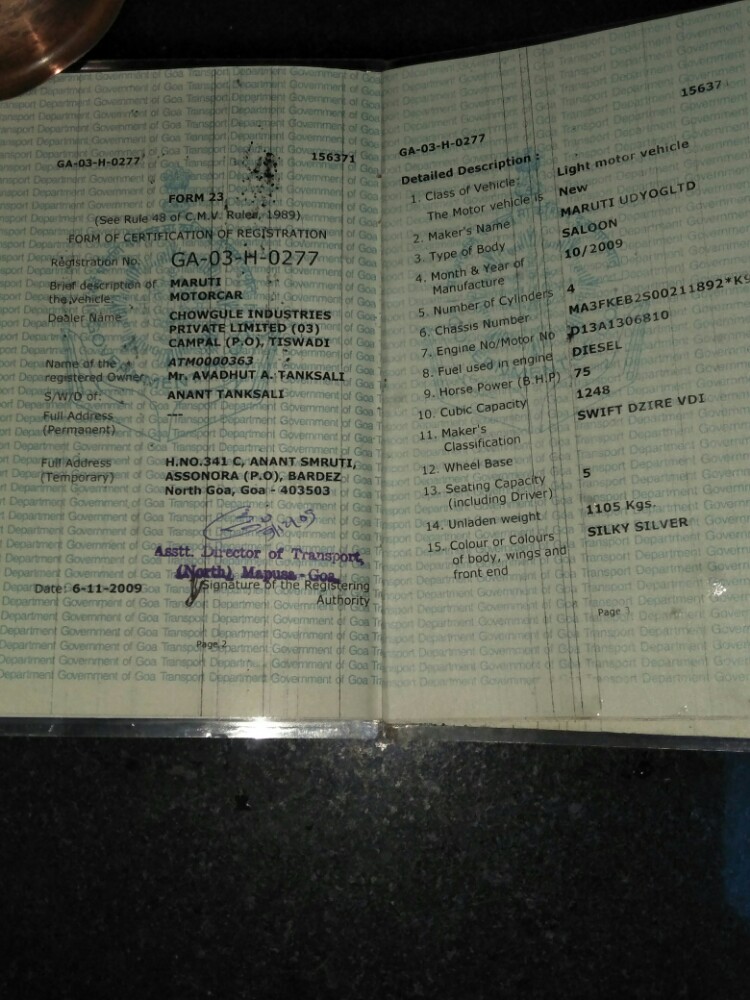 GA-03-H-0277 156371
FORM 23
(See Rule 48 of C.M.V. Rules, 1989)
FORM OF CERTIFICATION OF REGISTRATION
Registration No. GA-03-H-0277
Brief description of the vehicle MARUTI
MOTORCAR
Dealer Name CHOWGULE INDUSTRIES
PRIVATE LIMITED (03)
CAMPAL (P.O), TISWADI
ATM0000363
Name of the registered Owner Mr. AVADHUT A. TANKSALI
S/W/D of: ANANT TANKSALI
Full Address (Permanent) ---
Full Address (Temporary) H.NO.341 C, ANANT SMRUTI,
ASSONORA (P.O), BARDEZ
North Goa, Goa - 403503
Asstt. Director of Transport,
(North) Mapusa-Goa.
Date: 6-11-2009 Signature of the Registering
Authority
Page 2
15637
GA-03-H-0277
Detailed Description :
1. Class of Vehicle: Light motor vehicle
The Motor vehicle is New
2. Maker's Name MARUTI UDYOGLTD
3. Type of Body SALOON
4. Month & Year of Manufacture 10/2009
5. Number of Cylinders 4
6. Chassis Number MA3FKEB2S00211892*K9
7. Engine No/Motor No D13A1306810
8. Fuel used in engine DIESEL
9. Horse Power (B.H.P) 75
10. Cubic Capacity 1248
11. Maker's Classification SWIFT DZIRE VDI
12. Wheel Base
13. Seating Capacity (including Driver) 5
14. Unladen weight 1105 Kgs.
15. Colour or Colours of body, wings and front end SILKY SILVER
Page 3